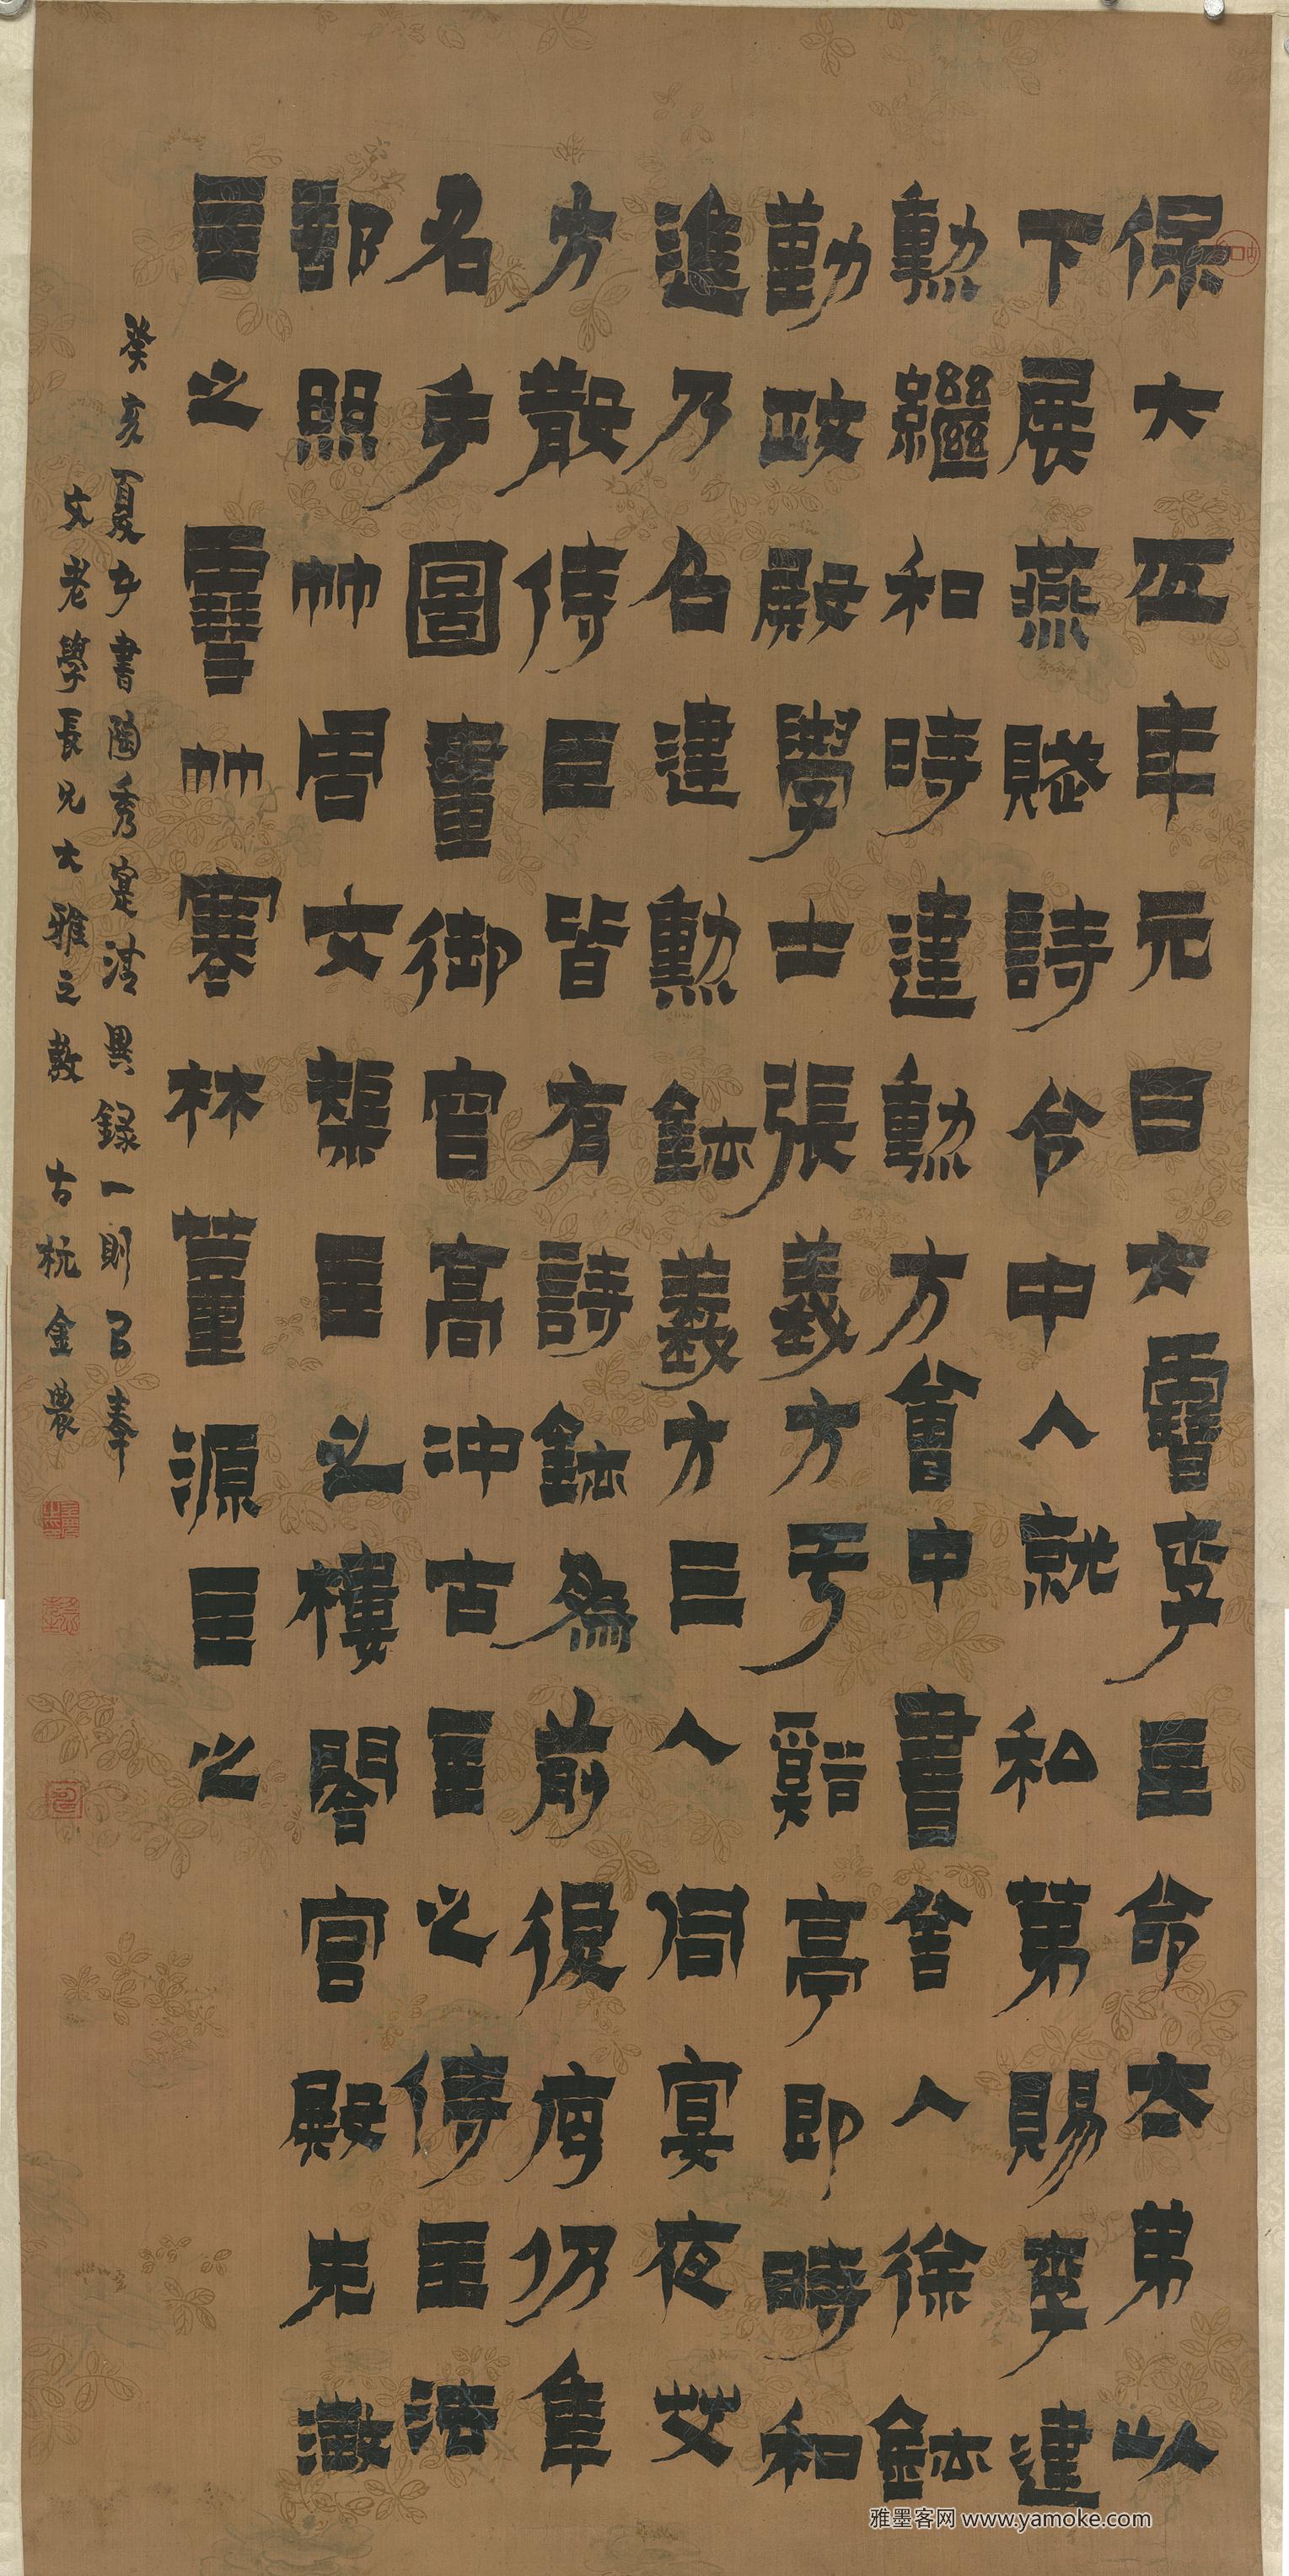 保大五年元日大雪李主命太弟以
下展燕賦詩令中人就私第賜李建
勳繼和時建勳方會中書舍人徐鉉
勤政殿學士張義方于谿亭即時和
進乃召建勳鉉義方三人同宴夜艾
方散侍臣皆有詩鉉為前後序仍集
名手圖畫御容高沖古主之侍臣法
部絲竹周文矩主之樓閣宮殿朱澂
主之雪竹寒林董源主之
癸亥夏五書陶秀寔清異錄一則㠯奉
文老學長兄大雅之教 古杭金農
雅墨客网 www.yamoke.com